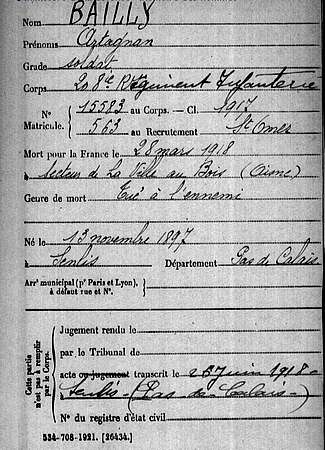 Nom BAILLY
Prénoms Artagnan
Grade soldat
Corps 208e Régiment Infanterie
N° 15583 au Corps. — Cl. 1917
Matricule. 563 au Recrutement St Omer
Mort pour la France le 28 mars 1918
à Secteur de La Ville au Bois (Aisne)
Genre de mort Tué à l'ennemi
Né le 13 novembre 1897
à Senlis Département Pas de Calais
Arrt municipal (pr Paris et Lyon),
à défaut rue et N°.
Cette partie
n'est pas à remplir
par le Corps.
Jugement rendu le
par le Tribunal de
acte ou jugement transcrit le 25 Juin 1918
à Senlis (Pas-de-Calais)
N° du registre d'état civil
534-708-1921. [26434.]